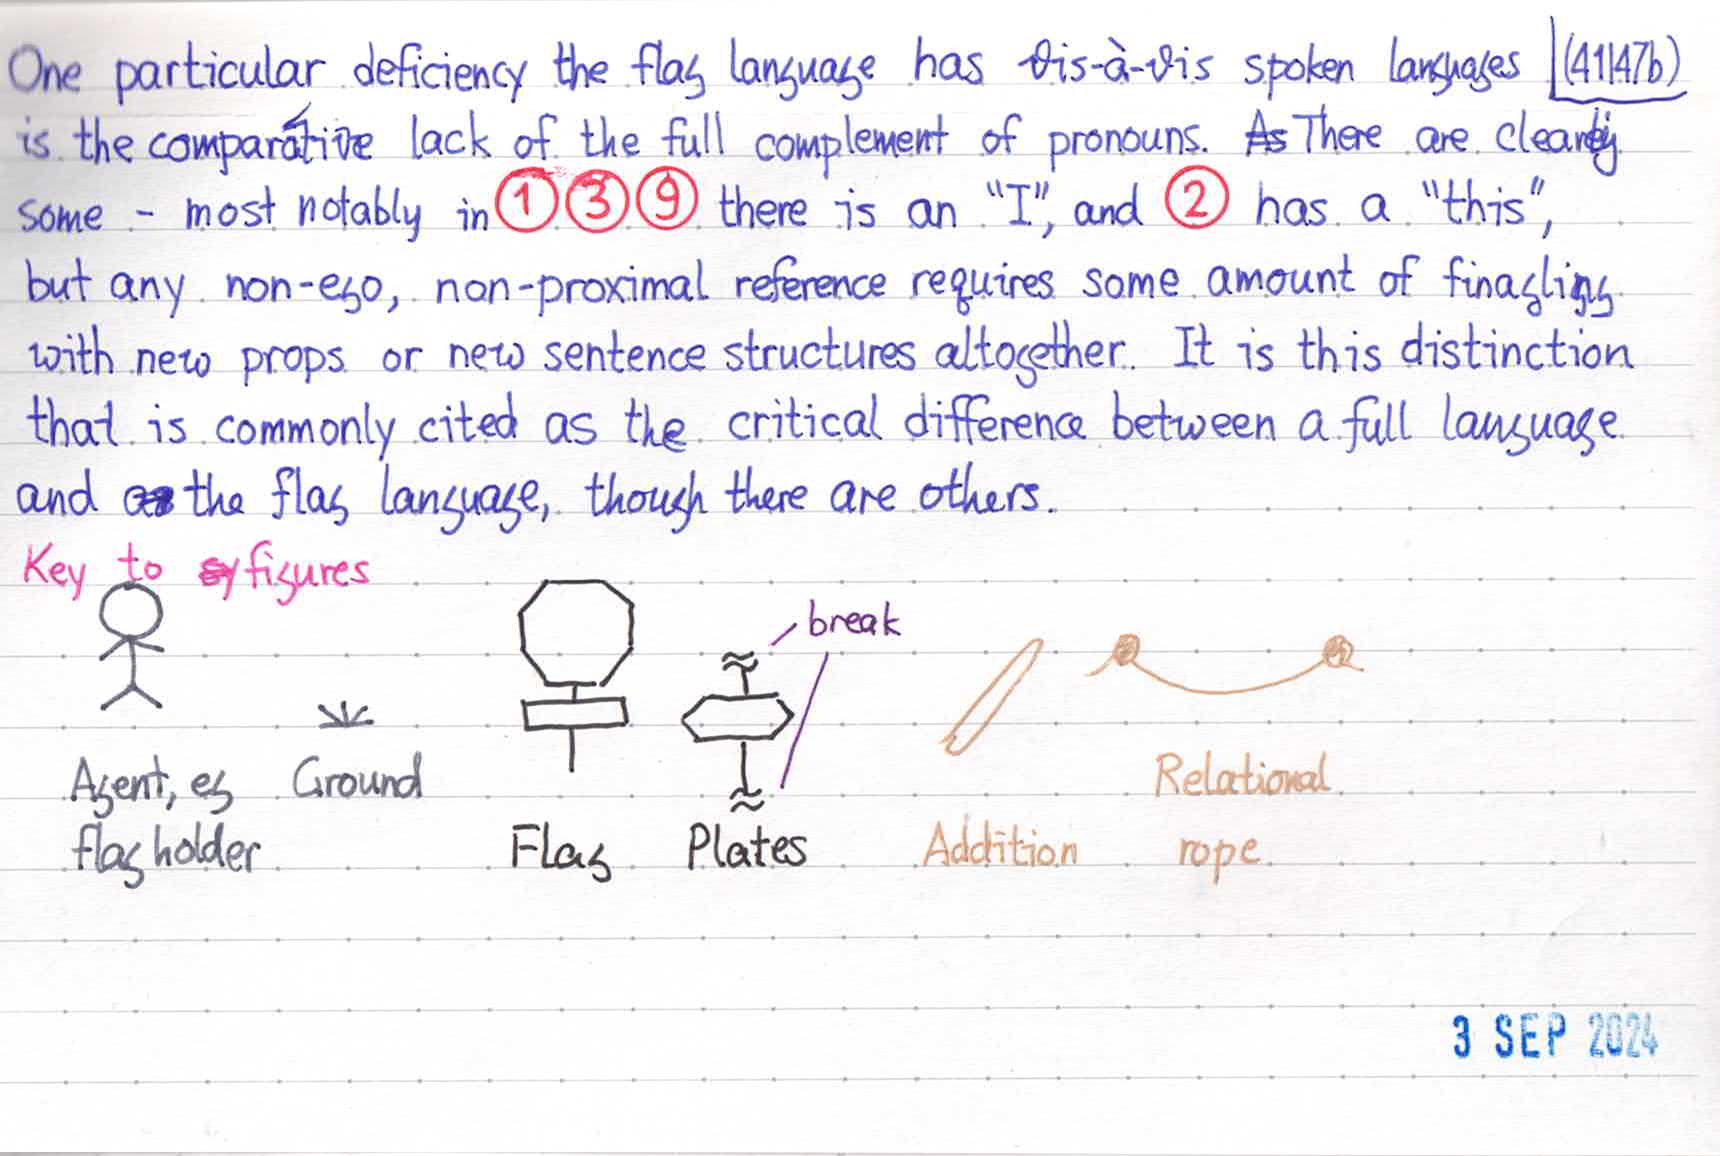 One particular deficiency the flag language has vis-à-vis spoken languages (41147b)
is the comparative lack of the full complement of pronouns. As There are clearly
some - most notably in ① ③ ⑨ there is an "I", and ② has a "this",
but any non-ego, non-proximal reference requires some amount of finagling
with new props or new sentence structures altogether. It is this distinction
that is commonly cited as the critical difference between a full language
and the flag language, though there are others.
Key to figures
break
Agent, eg
flag holder
Ground
Flag
Plates
Addition
Relational
rope
3 SEP 2024